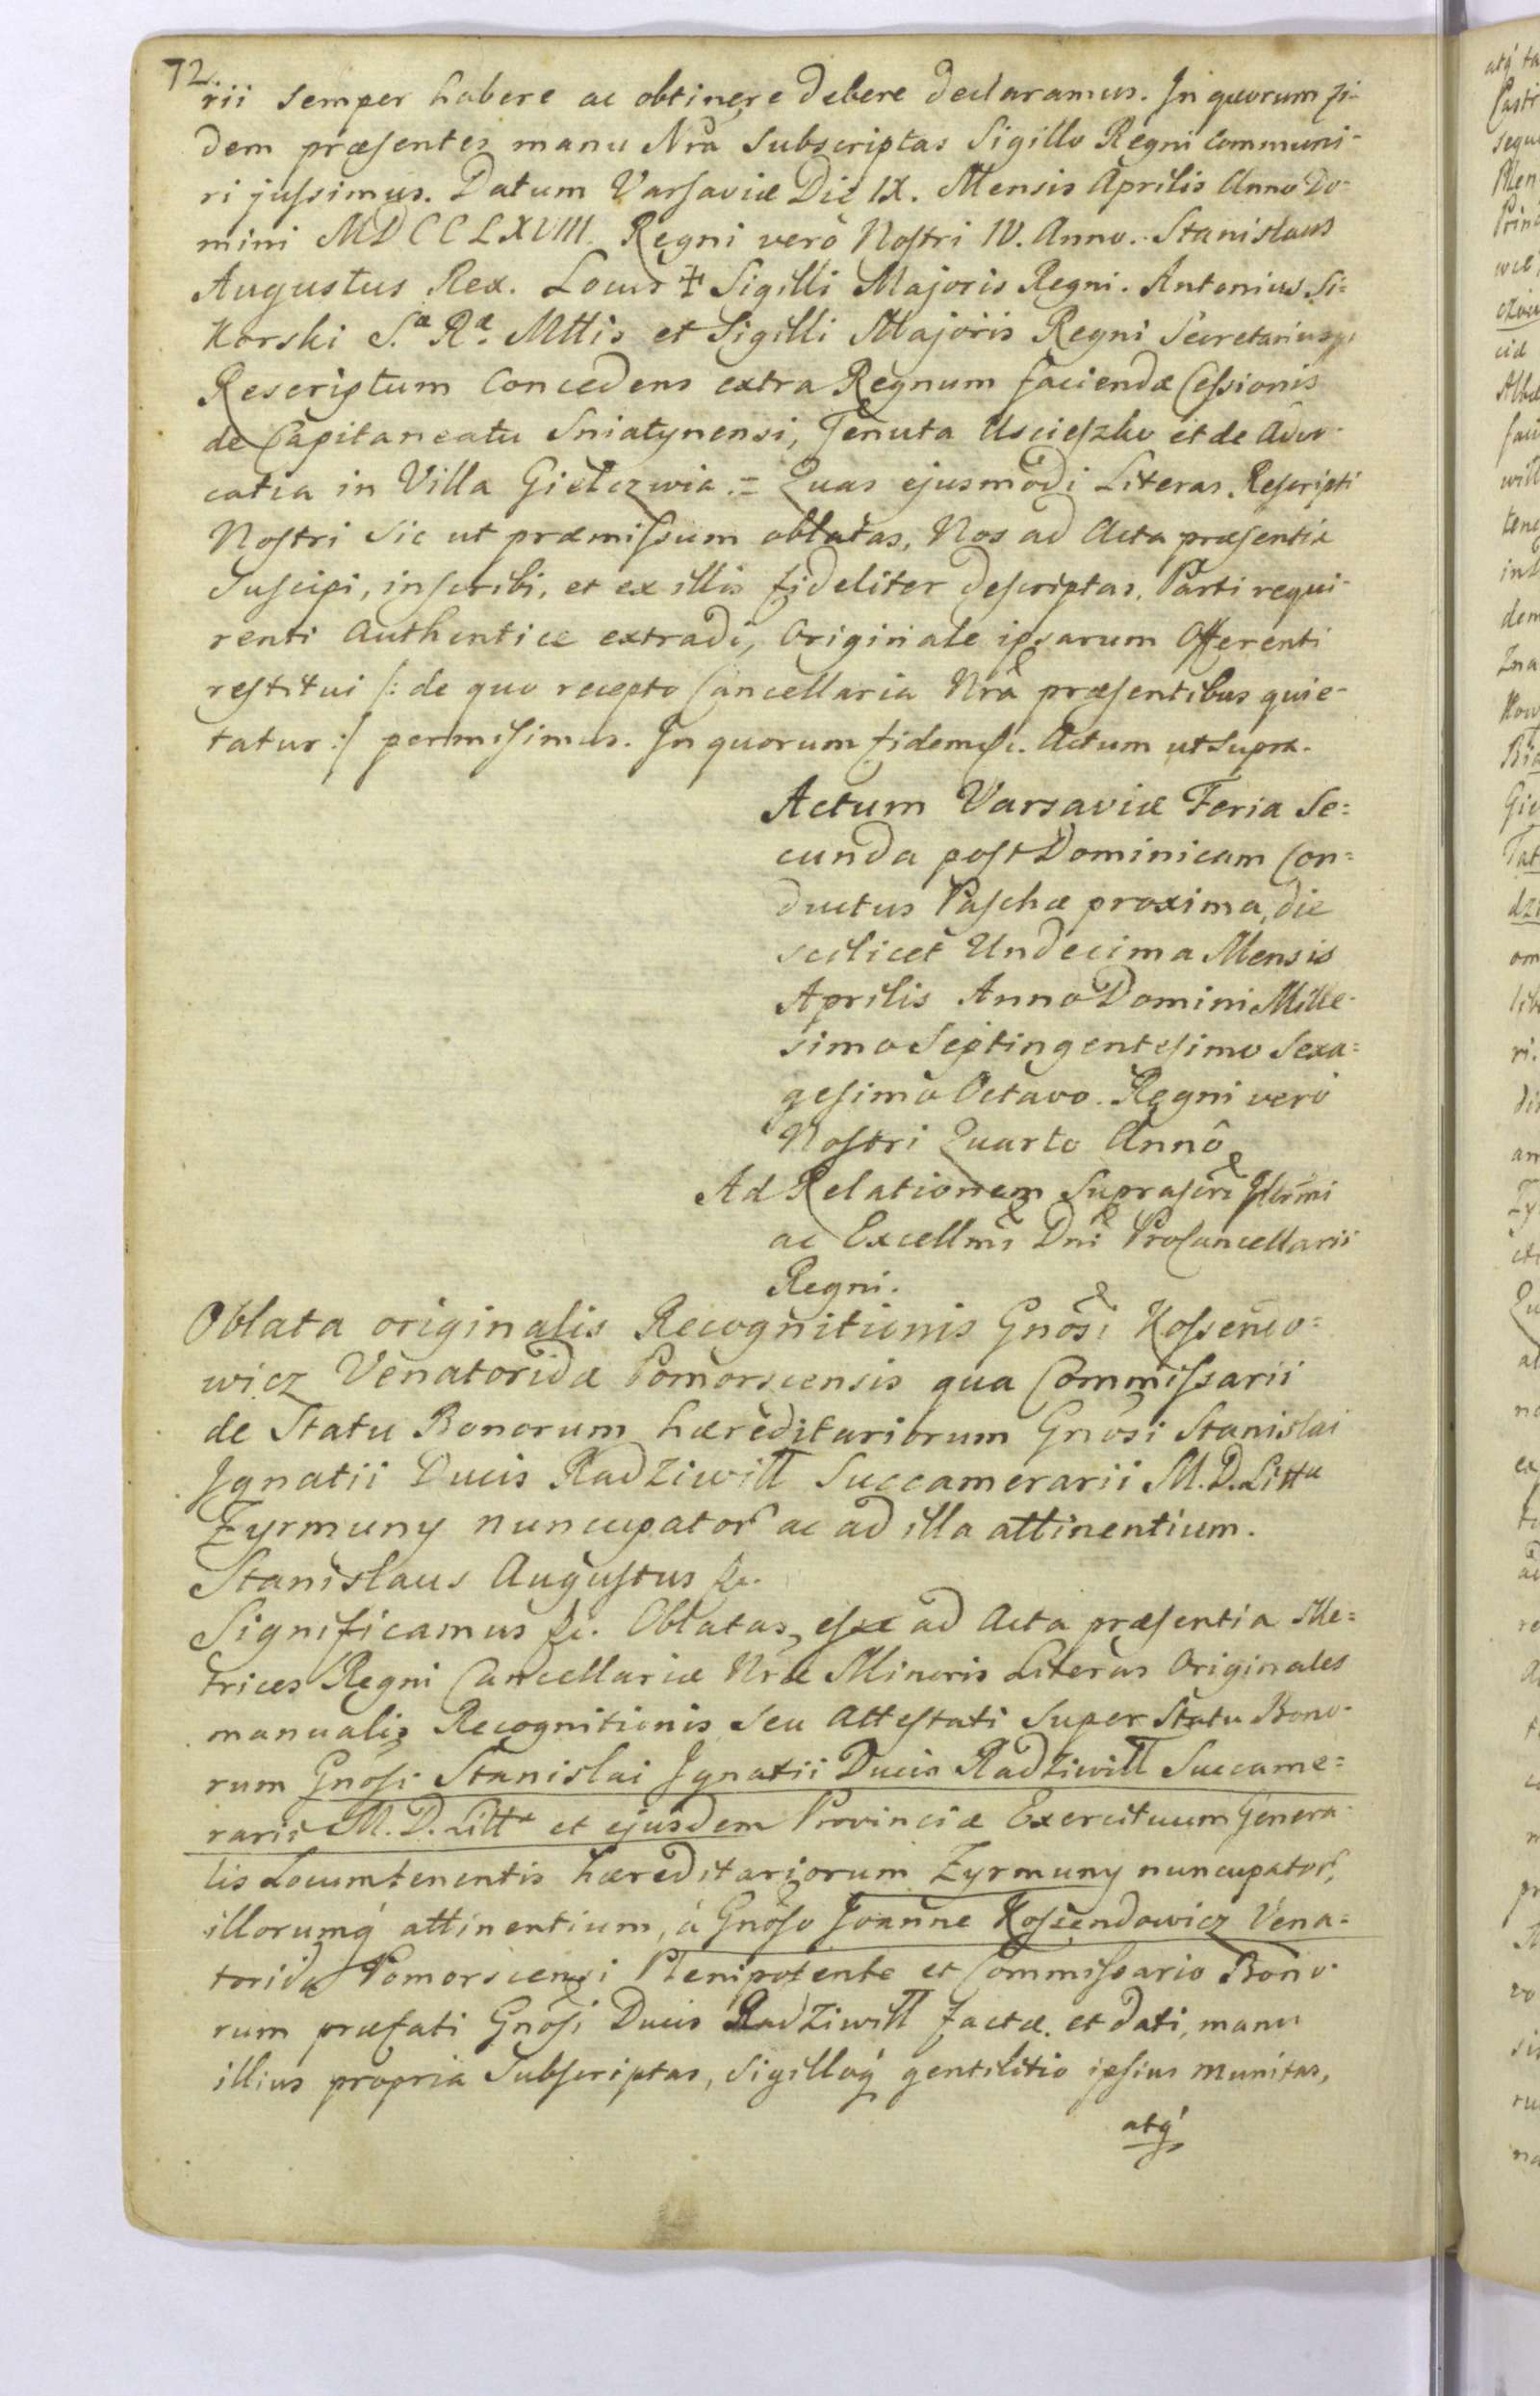 72.
rii semper habere ac obtinere debere declaramus. In quorum fi-
dem præsentes manu Nrã Subscriptas Sigillo Regni Communi-
ri jussimus. Datum Varsaviæ Die IX. Mensis Aprilis Anno Do-
mini MDCCLXVIII. Regni verò Nostri IV. Anno. Stanislaus
Augustus Rex. Locus ✝ Sigilli Majoris Regni. Antonius Si=
korski S.æ R.æ Mttis et Sigilli Majoris Regni Secretarius
Rescriptum Concedens extra Regnum faciendæ Cessionis
de Capitaneatu Sniatynensi, Tenuta Uscieszko et de Advo-
catia in Villa Gielczwia. = Quas ejusmodi Literas Rescripti
Nostri sic ut præmissum oblatas, Nos ad Acta præsentia
Suscipi, inscribi, et ex illis fideliter descriptas, Parti requi-
renti Authentice extradi, Originale ipsarum Offerenti
restitui /: de quo recepto Cancellaria Nrã præsentibus quie-
tatur :/ permisimus. In quorum fidem &c. Actum ut supra.
Actum Varsaviæ Feria Se=
cunda post Dominicam Con=
ductus Paschæ proxima, die
scilicet Undecima Mensis
Aprilis Anno Domini Mille-
simo Septingentesimo Sexa=
gesimo Octavo. Regni verò
Nostri Quarto Annô
Ad Relationem Suprascri Illmi
ac Excellmi Dni Procancellarii
Regni.
Oblata originalis Recognitionis Gnosi Kossendo=
wicz Venatoridæ Pomorscensis qua Commissarii
de Statu Bonorum hæreditariorum Gnosi Stanislai
Ignatii Ducis Radziwiłł Succamerarii M.D. Littæ
Zyrmuny nuncupator ac ad illa attinentium.
Stanislaus Augustus &c.
Significamus &c. Oblatas esse ad Acta præsentia Me=
trices Regni Cancellariæ Nræ Minoris Literas Originales
manualis Recognitionis seu Attestati super Statu Bono-
rum Gnosi Stanislai Ignatii Ducis Radziwiłł Succame=
rarii M.D. Littæ et ejusdem Provinciæ Exercituum Genera-
lis Locumtenentis hæreditariorum Zyrmuny nuncupator,
illorumq́ attinentium, à Gnoso Joanne Kossendowicz Vena=
torida Pomorscensi Plenipotente et Commissario Bono-
rum præfati Gnosi Ducis Radziwiłł factæ et dati, manu
illius propria Subscriptas, Sigilloq́ gentilitio ipsius munitas,
atq́